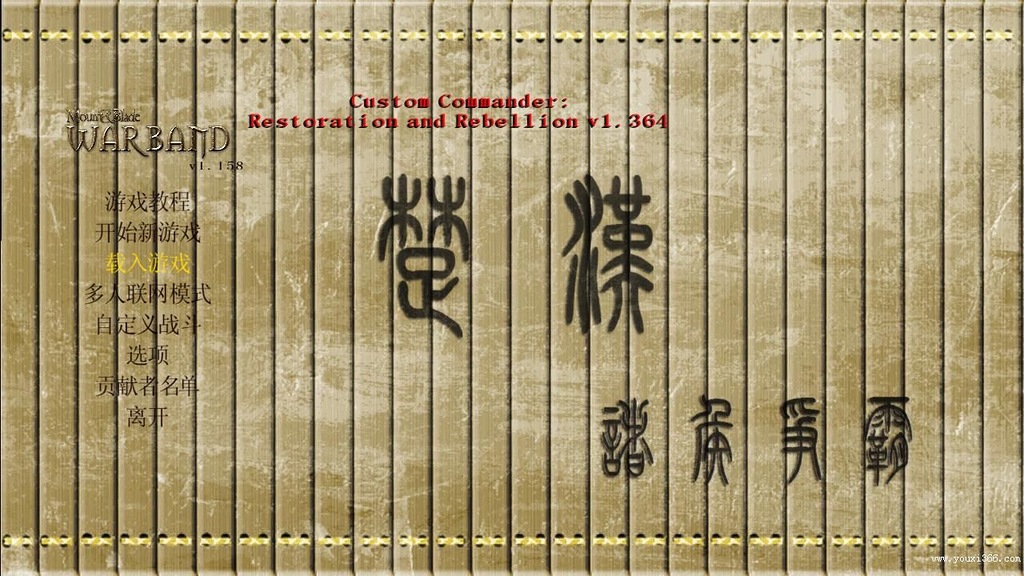 Custom Commander:
Restoration and Rebellion v1.364
Mount&Blade
WARBAND
v1.158
游戏教程
开始新游戏
载入游戏
多人联网模式
自定义战斗
选项
贡献者名单
离开
楚 漢
諸 侯 爭 霸
www.youxi366.com